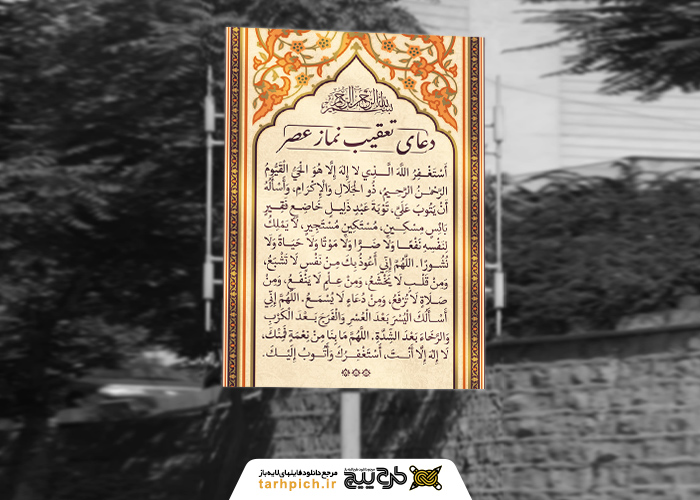 بسم الله الرحمن الرحیم
دعای تعقیب نماز عصر
أَسْتَغْفِرُ اللَّهَ الَّذِي لا إِلهَ إِلَّا هُوَ الْحَيُّ الْقَيُّومُ
الرَّحْمٰنُ الرَّحِيمُ، ذُو الْجَلَالِ وَالْإِكْرَامِ، وَأَسْأَلُهُ
أَنْ يَتُوبَ عَلَيَّ، تَوْبَةَ عَبْدٍ ذَلِيلٍ خَاضِعٍ فَقِيرٍ
بَائِسٍ مِسْكِينٍ، مُسْتَكِينٍ مُسْتَجِيرٍ، لَا يَمْلِكُ
لِنَفْسِهِ نَفْعًا وَلَا ضَرًّا وَلَا مَوْتًا وَلَا حَيَاةً وَلَا
نُشُورًا. اللَّهُمَّ إِنِّي أَعُوذُ بِكَ مِنْ نَفْسٍ لَا تَشْبَعُ،
وَمِنْ قَلْبٍ لَا يَخْشَعُ، وَمِنْ عِلْمٍ لَا يَنْفَعُ، وَمِنْ
صَلَاةٍ لَا تُرْفَعُ، وَمِنْ دُعَاءٍ لَا يُسْمَعُ. اللَّهُمَّ إِنِّي
أَسْأَلُكَ الْيُسْرَ بَعْدَ الْعُسْرِ وَالْفَرَجَ بَعْدَ الْكَرْبِ
وَالرَّخَاءَ بَعْدَ الشِّدَّةِ. اللَّهُمَّ مَا بِنَا مِنْ نِعْمَةٍ فَمِنْكَ،
لَا إِلهَ إِلَّا أَنْتَ، أَسْتَغْفِرُكَ وَأَتُوبُ إِلَيْكَ.
مرجع دانلود فایلهای لایه باز
tarhpich.ir
طرح پیچ